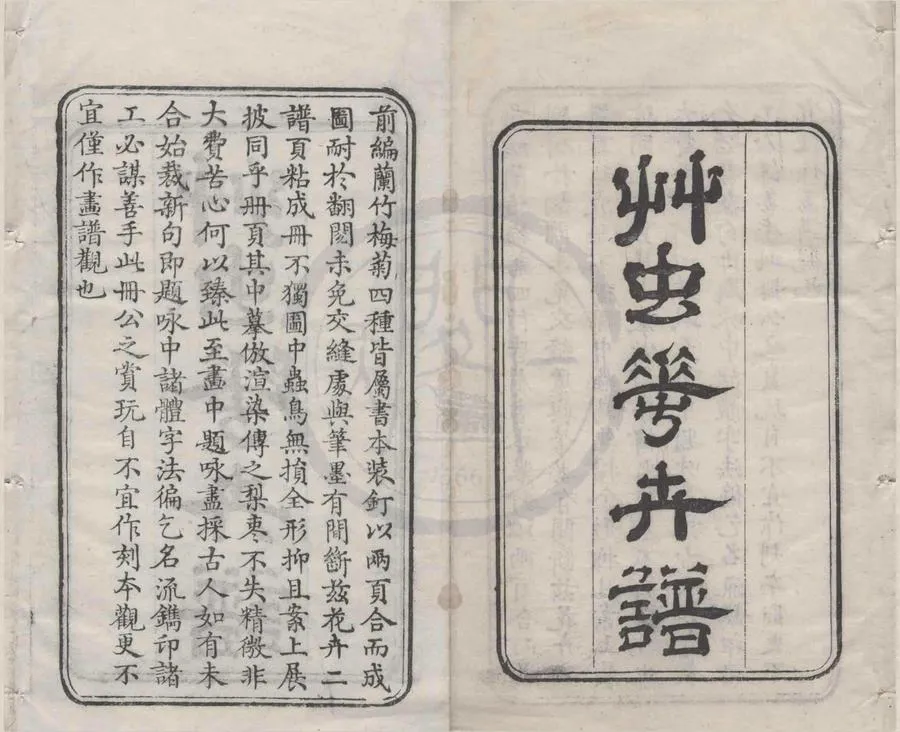 艸虫華卉譜
前編蘭竹梅菊四種皆屬書本裝釘以兩頁合而成
圖耐於翻閱未免交縫處與筆墨有間斷茲花卉二
譜頁粘成冊不獨圖中蟲鳥無損全形抑且案上展
披同乎冊頁其中摹倣渲染傳之梨棗不失精微非
大費苦心何以臻此至畫中題咏盡採古人如有未
合始裁新句即題咏中諸體字法徧乞名流鐫印諸
工必謀善手此冊公之賞玩自不宜作刻本觀更不
宜僅作畫譜觀也